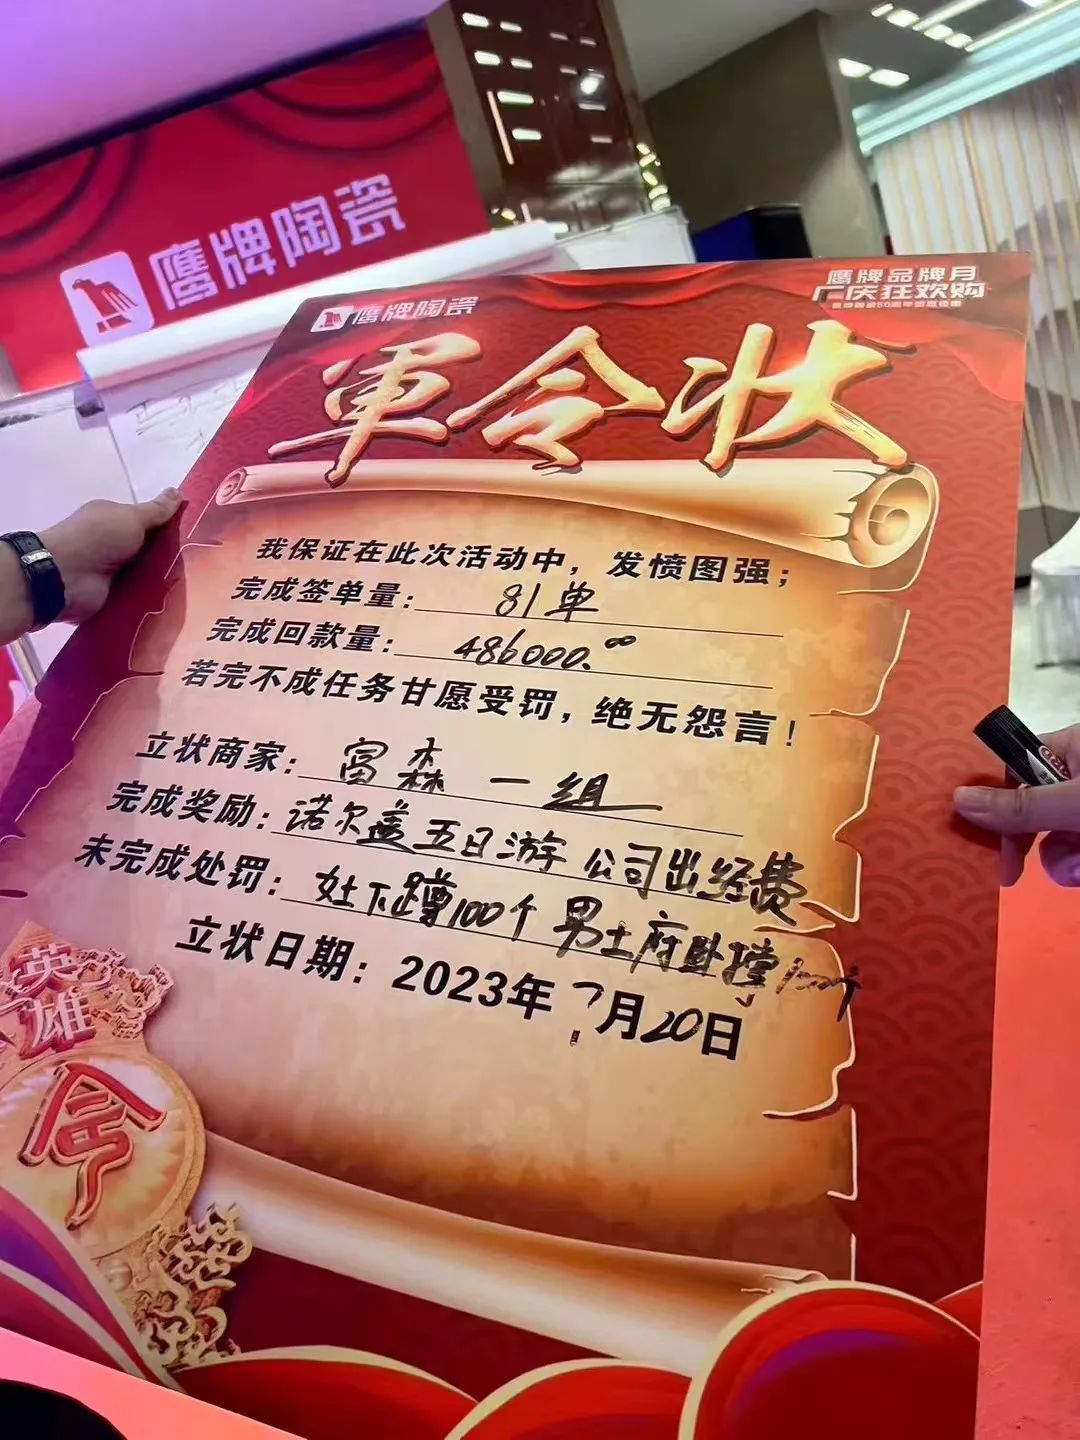 鹰牌陶瓷
鹰牌陶瓷
鹰牌品牌月
厂庆狂欢购
軍令状
我保证在此次活动中，发愤图强；
完成签单量：81单
完成回款量：486000.00
若完不成任务甘愿受罚，绝无怨言！
立状商家：富森 一组
完成奖励：诺尔盖五日游 公司出经费
未完成处罚：女士下蹲100个 男士府卧撑100个
立状日期：2023年7月20日
英雄
令